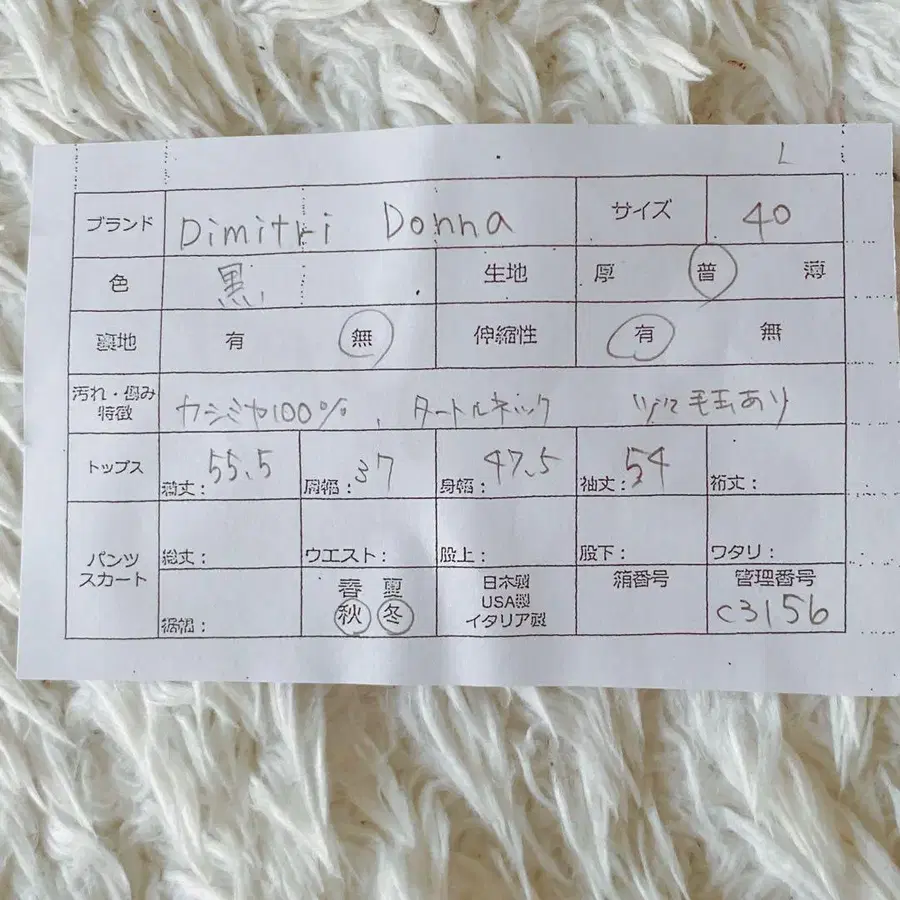 L
ブランド Dimitri Donna サイズ 40
色 黒 生地 厚 普 薄
裏地 有 無 伸縮性 有 無
汚れ・傷み 特徴 カシミヤ100%、タートルネック 毛玉あり
トップス 着丈：55.5 肩幅：37 身幅：47.5 袖丈：54 裄丈：
パンツ スカート 総丈： ウエスト： 股上： 股下： ワタリ：
裾幅： 春 夏 秋 冬 日本製 USA製 イタリア製 箱番号 管理番号 C3156